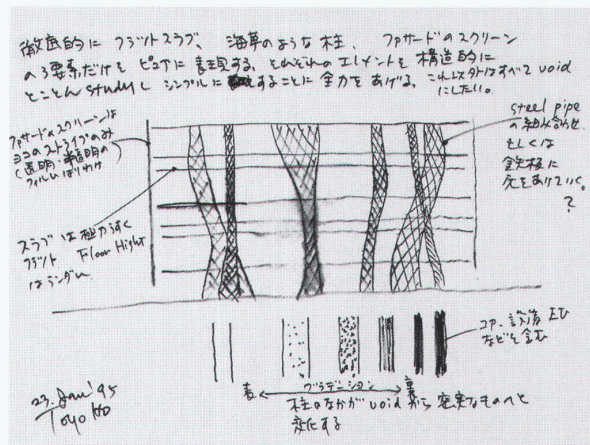 徹底的にフラットスラブ、海草のような柱、ファサードのスクリーン
の3要素だけをピュアに表現する、それぞれのエレメントを構造的に
とことんstudyし シンプルにすることに全力をあげる、これ以外はすべてvoid
にしたい。
ファサードのスクリーンは
ヨコのストライプのみ
(透明・半透明の
フィルムはりわけ
スラブは極力うすく
フラット Floor Hight
はランダム
steel pipe
の組み合わせ
もしくは
鉄板に
穴をあけていく。
?
コア、設備 EV
などを含む
表 グラデーション 裏
柱のなかがvoidから密実なものへと
変化する
23. Jan '95
Toyo Ito